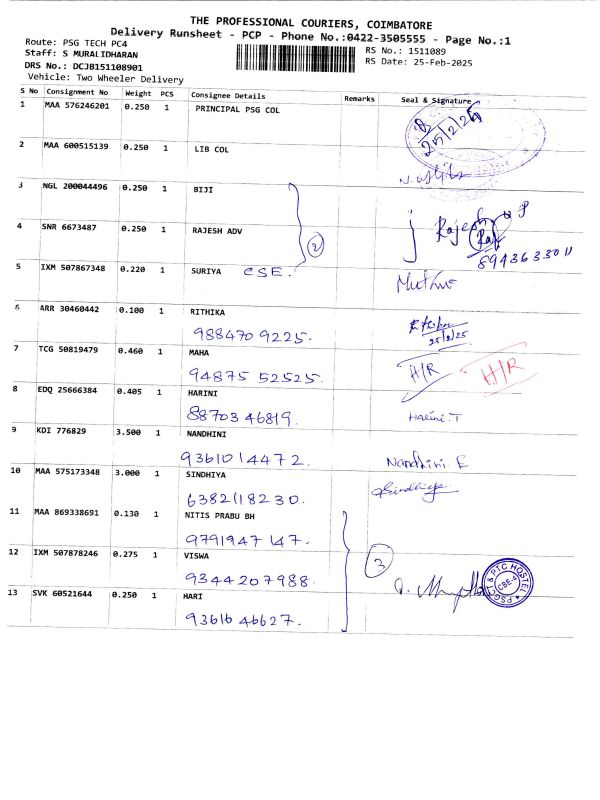 THE PROFESSIONAL COURIERS, COIMBATORE
Delivery Runsheet - PCP - Phone No.:0422-3505555 - Page No.:1
Route: PSG TECH PC4
RS No.: 1511089
Staff: S MURALIDHARAN
RS Date: 25-Feb-2025
DRS No.: DCJB151108901
Vehicle: Two Wheeler Delivery
S No Consignment No Weight PCS Consignee Details Remarks Seal & Signature
1 MAA 576246201 0.250 1 PRINCIPAL PSG COL
25/2/25
2 MAA 600515139 0.250 1 LIB COL
3 NGL 200044496 0.250 1 BIJI
4 SNR 6673487 0.250 1 RAJESH ADV Rajesh
2
8943633011
5 IXM 507867348 0.220 1 SURIYA CSE.
6 ARR 30460442 0.100 1 RITHIKA
9884709225. 25/2/25
7 TCG 50819479 0.460 1 MAHA H/R H/R
94875 52525.
8 EDQ 25666384 0.405 1 HARINI
88703 46819. Harini.T
9 KDI 776829 3.500 1 NANDHINI
9361014472. Nandhini E
10 MAA 575173348 3.000 1 SINDHIYA Sindhiya
6382118230.
11 MAA 869338691 0.130 1 NITIS PRABU BH
9791947147.
12 IXM 507878246 0.275 1 VISWA 3
9344207988.
PSGCT & PTC HOSTEL CBE-4
13 SVK 60521644 0.250 1 HARI
9361646627.